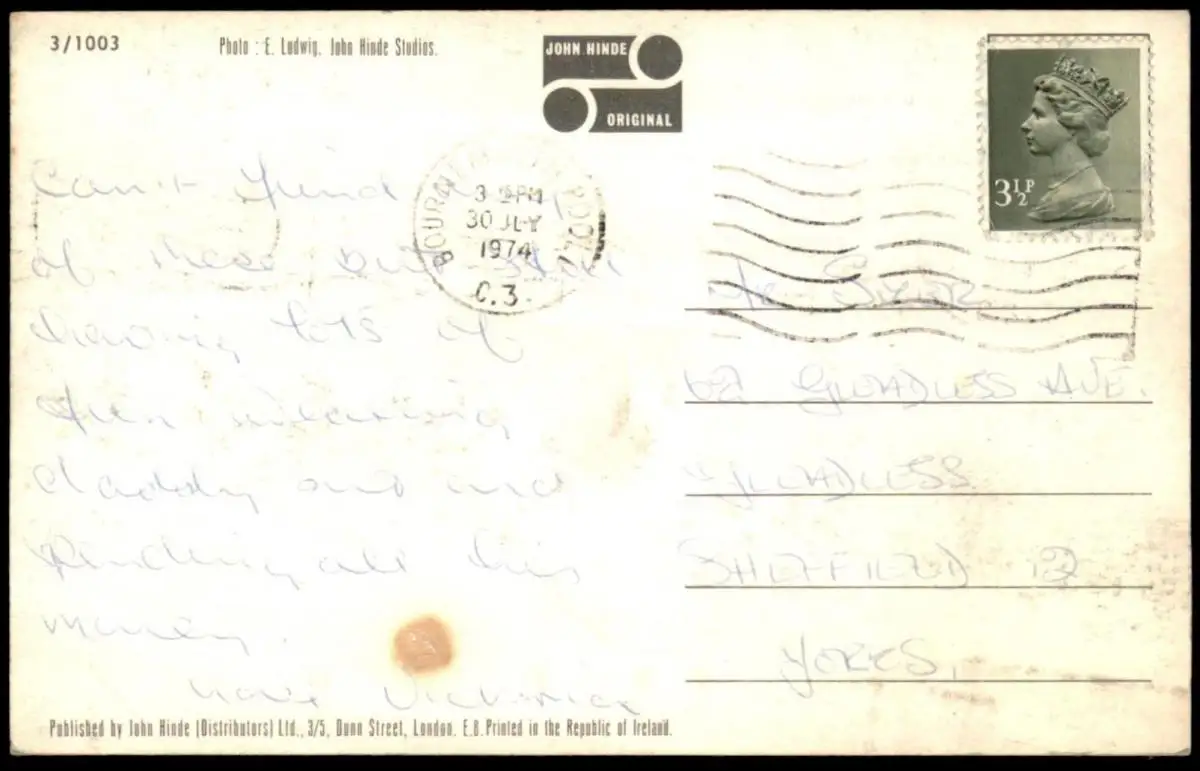 3/1003
Photo : E. Ludwig, John Hinde Studios.
JOHN HINDE
ORIGINAL
3½P
30 JLY
1974
C.3.
Can't find any
of these but still
having lots of
fun wearing
daddy out and
spending all his
money.
love Victoria
Mr
62 GLEADLESS AVE.
GLEADLESS
SHEFFIELD 12
YORKS.
Published by John Hinde (Distributors) Ltd., 3/5, Dunn Street, London. E.8. Printed in the Republic of Ireland.